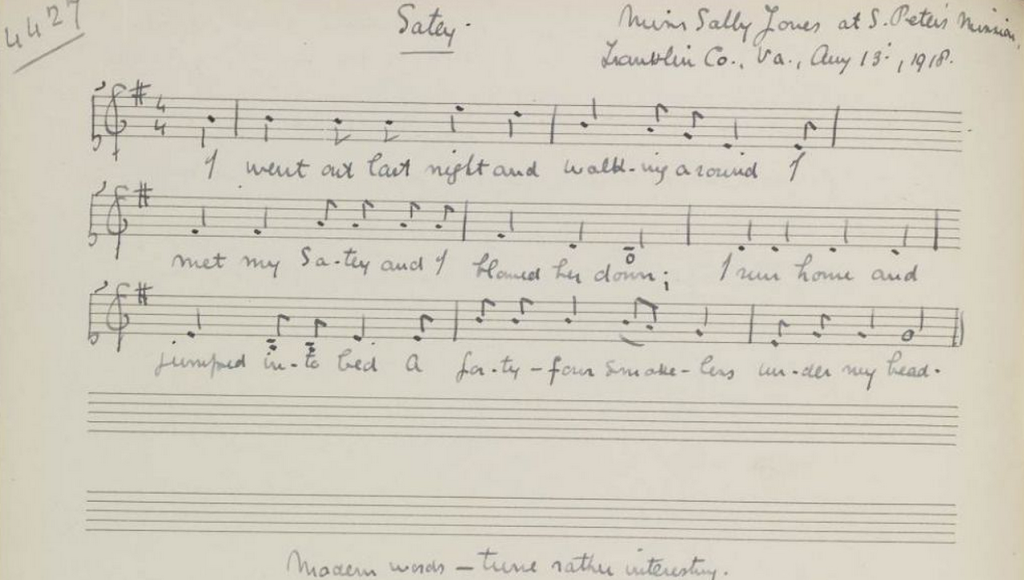 4427
Satey.
Miss Sally Jones at S. Peter's Mission,
Franklin Co., Va., Aug 13, 1918.
4
4
I went out last night and walk-ing around I
met my Sa-tey and I blowed her down; I run home and
jumped in-to bed A for-ty-four smoke-less un-der my head.
Modern words — tune rather interesting.